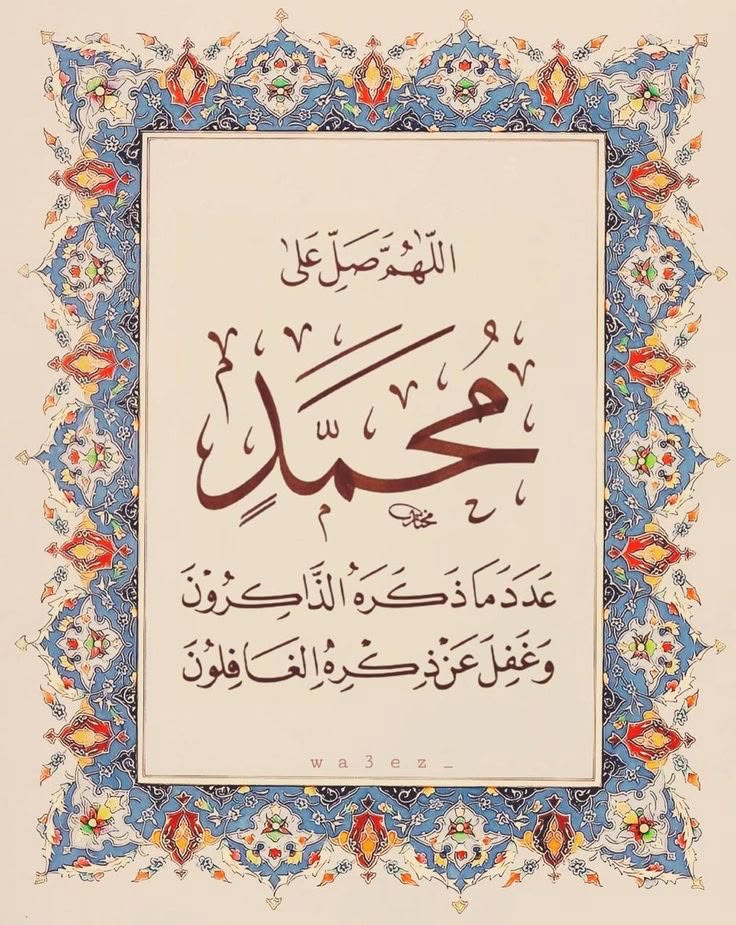 اللّٰهُمَّ صَلِّ عَلىٰ
مُحَمَّدٍ
عَدَدَ مَا ذَكَرَهُ الذَّاكِرُوْنَ
وَغَفِلَ عَنْ ذِكْرِهِ الغَافِلُوْنَ
wa3ez_